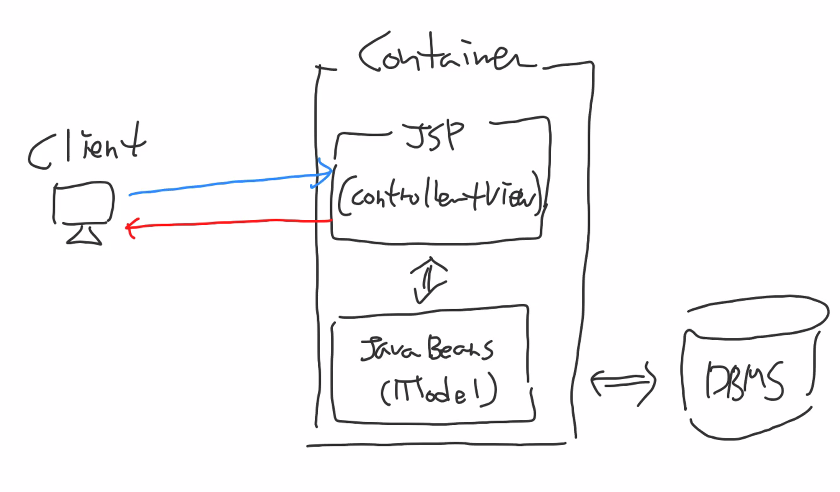 Container
Client
JSP
(Controller+View)
JavaBeans
(Model)
DBMS